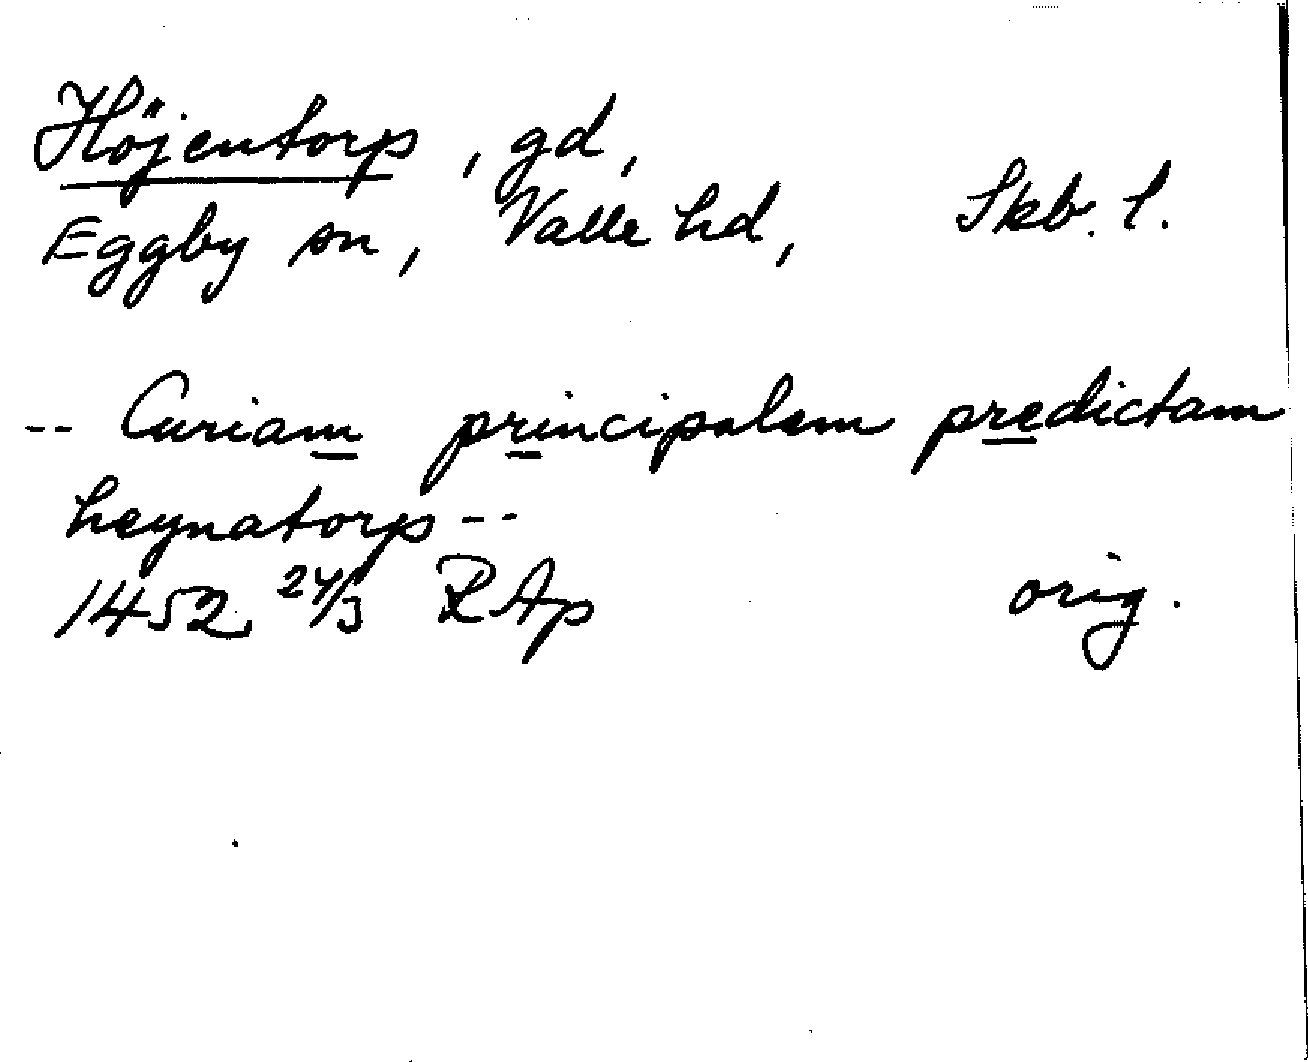 Höjentorp, gd,
Eggby sn, Valle hd, Skb. l.
-- Curiam principalem predictam
heynatorp --
1452 24/3 RAp orig.